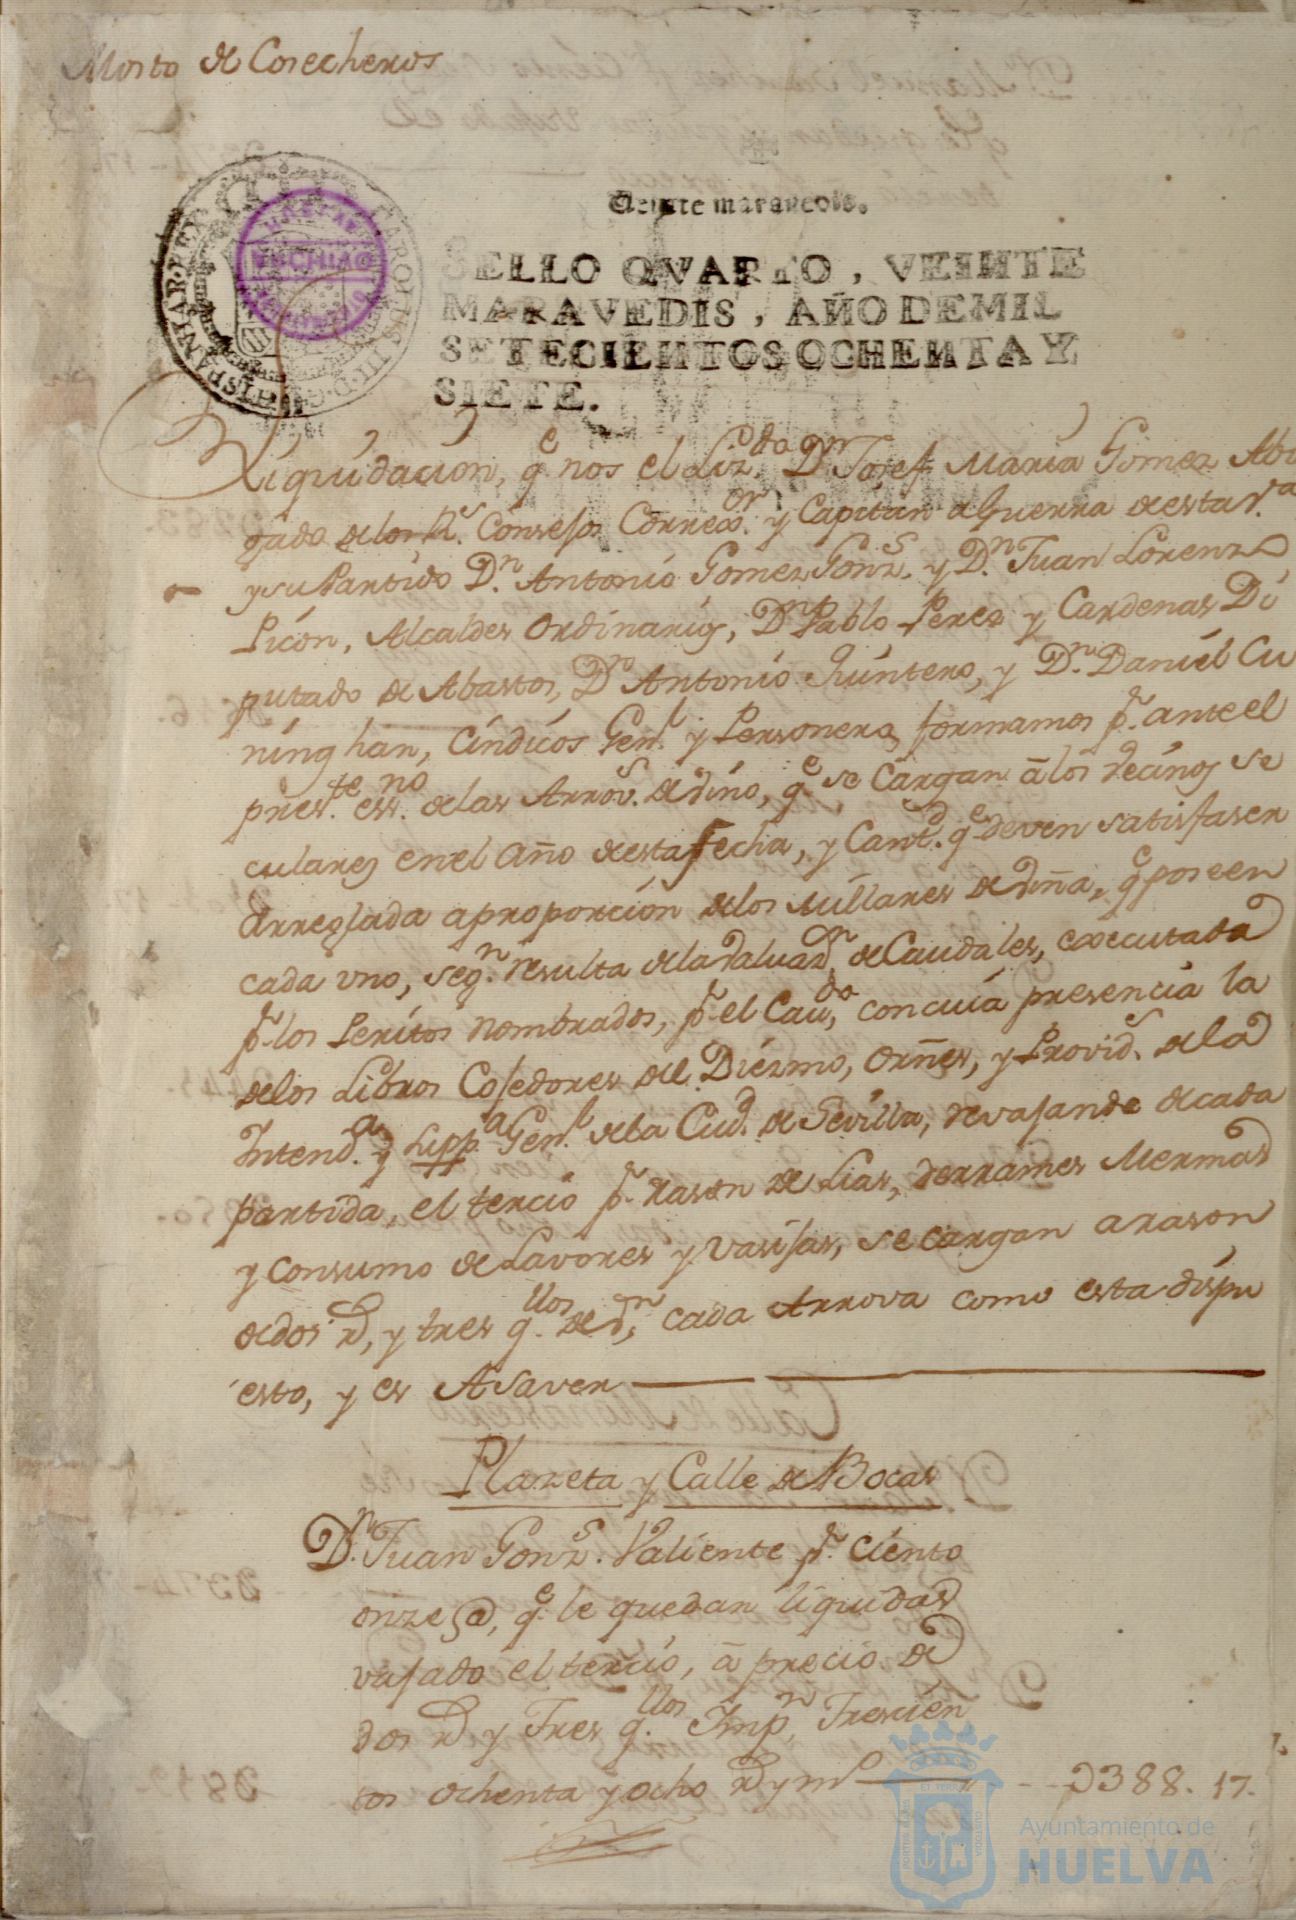 Mosto de Cosecheros
Veinte maravedis.
SELLO QVARTO, VEINTE
MARAVEDIS, AÑO DE MIL
SETECIENTOS OCHENTA Y
SIETE.
HISPANIAR·REX CAROLUS III·D·G
ARCHIVO
Liquidacion, q.e nos el Liz.do D.n Josef Maria Gomez Abo
gado de los R.s Consejos Correx.or y Capitan a Guerra de esta V.a
y su Partido D.n Antonio Gomez Gonz.s y D.n Juan Lorenzo
Picon, Alcaldes Ordinarios, D.n Pablo Perez y Cardenas Di
putado de Abastos, D.n Antonio Quintero, y D.n Daniel Cu
ninghan, Cindicos Gen.l y Personero, formamos p.r ante el
pres.te ess.no de las Arrov.s de vino, q.e se Cargan á los vecinos se
culares en el Año de esta fecha, y Cant.d q.e deven satisfaser
arreglada a proporcion de los millares de viña, q.e poseen
cada uno, seg.n resulta de la valuaz.on de Caudales, executada
p.r los Peritos nombrados, p.r el Cav.do, con cuia presencia la
de los Libros Cojedores del Diezmo, orñes, y Provid.s de la
Intend.a y Supp.a Gen.l de la Ciud. de Sevilla, revajando de cada
partida, el tercio p.r rason de Lias, derrames Mermas
y Consumo de Lavores y Vasijas, se cargan a rason
de dos r.d, y tres q.llos de v.n, cada Arrova como esta dispu
esto, y es A saver
Plazeta y Calle de Bocas
D.n Juan Gonz.s Valiente p.r ciento
onze @, q.e le quedan liquidas
vajado el tercio, á precio de
dos r.d y Tres q.llos Imp.n Trescien
tos ochenta y ocho r.d y m.o - - - 388. 17.
Ayuntamiento de
HUELVA